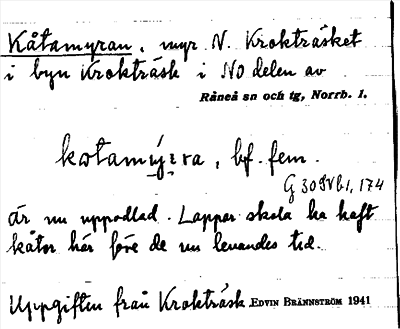 Kåtamyran, myr N. Krokträsket
i byn Krokträsk i NO delen av
Råneå sn och tg, Norrb. l.
kωtamýrra, bf. fem.
är nu uppodlad. Lappar skola ha haft
kåtor här före de nu levandes tid.
Uppgiften från Krokträsk EDVIN BRÄNNSTRÖM 1941